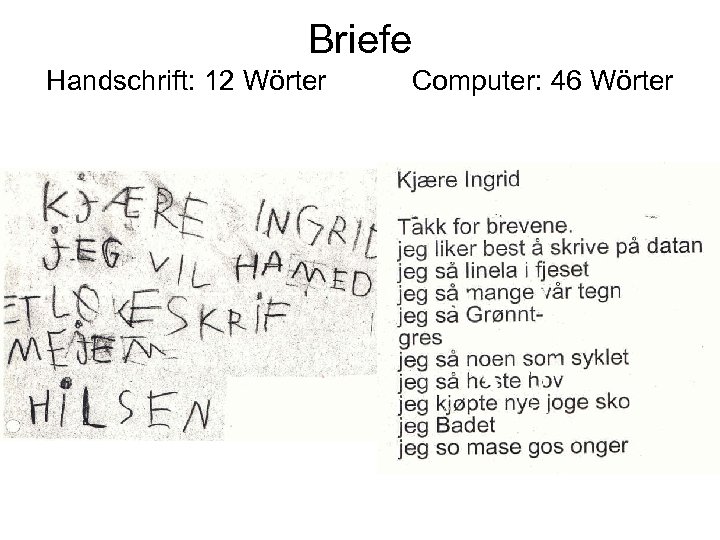 Briefe
Handschrift: 12 Wörter
Computer: 46 Wörter
KJÆRE INGRID
JEG VIL HA MED
ET LØKESKRIF
MEJEM
HILSEN
Kjære Ingrid
Takk for brevene.
jeg liker best å skrive på datan
jeg så linela i fjeset
jeg så mange vår tegn
jeg så Grønnt-
gres
jeg så noen som syklet
jeg så heste hov
jeg kjøpte nye joge sko
jeg Badet
jeg so mase gos onger